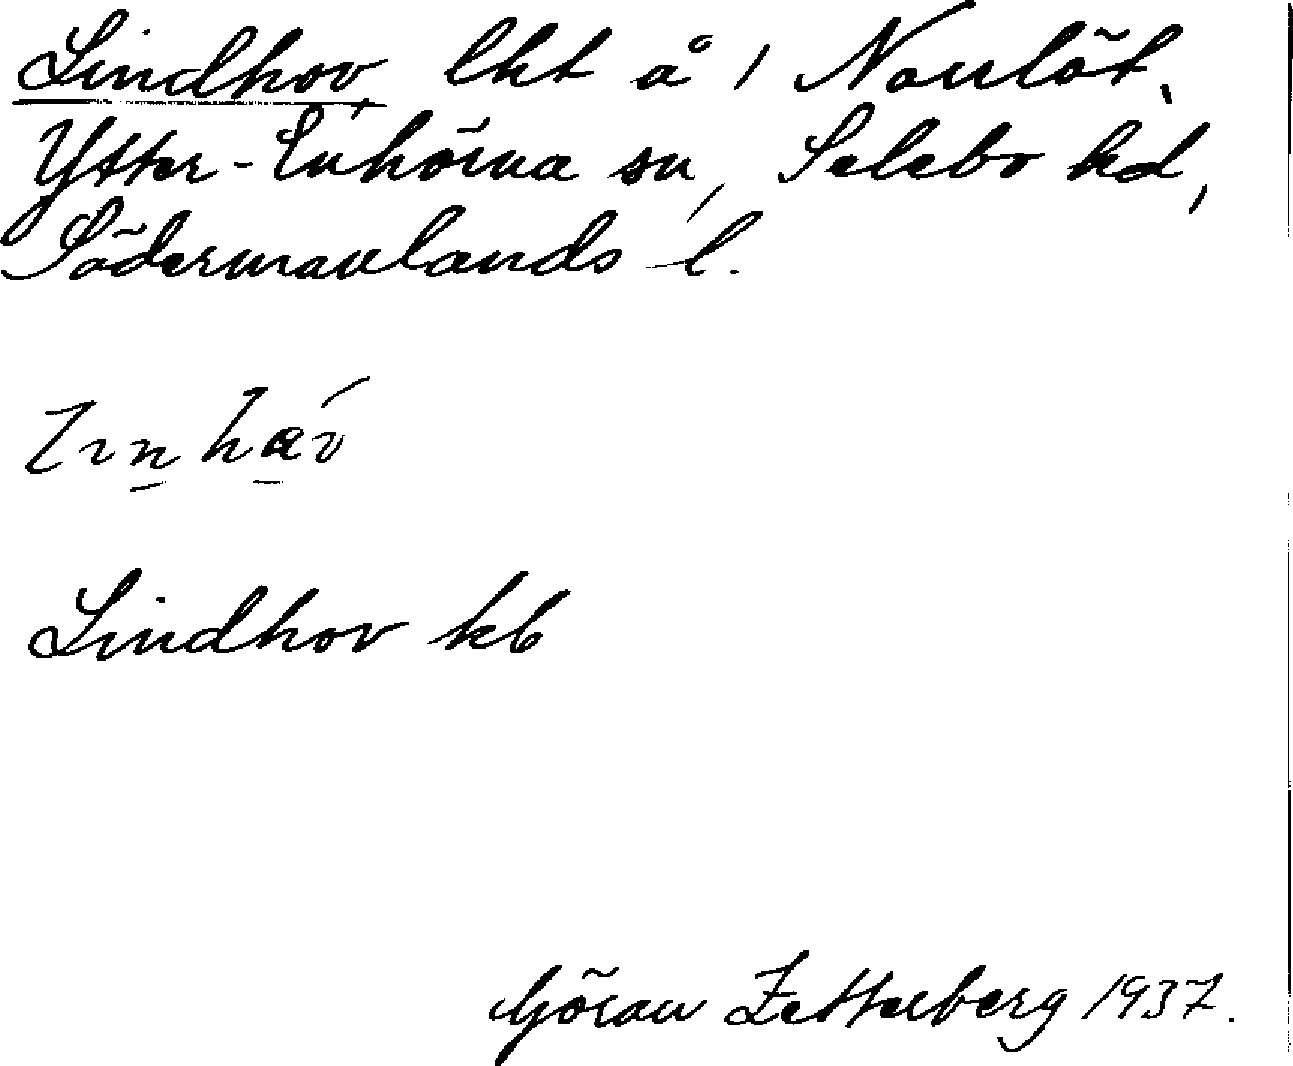 Lindhov, lht å 1 Norrlöt,
Ytter-Enhörna sn, Selebo hd,
Södermanlands l.
Lindhov kb
Göran Zetterberg 1937.